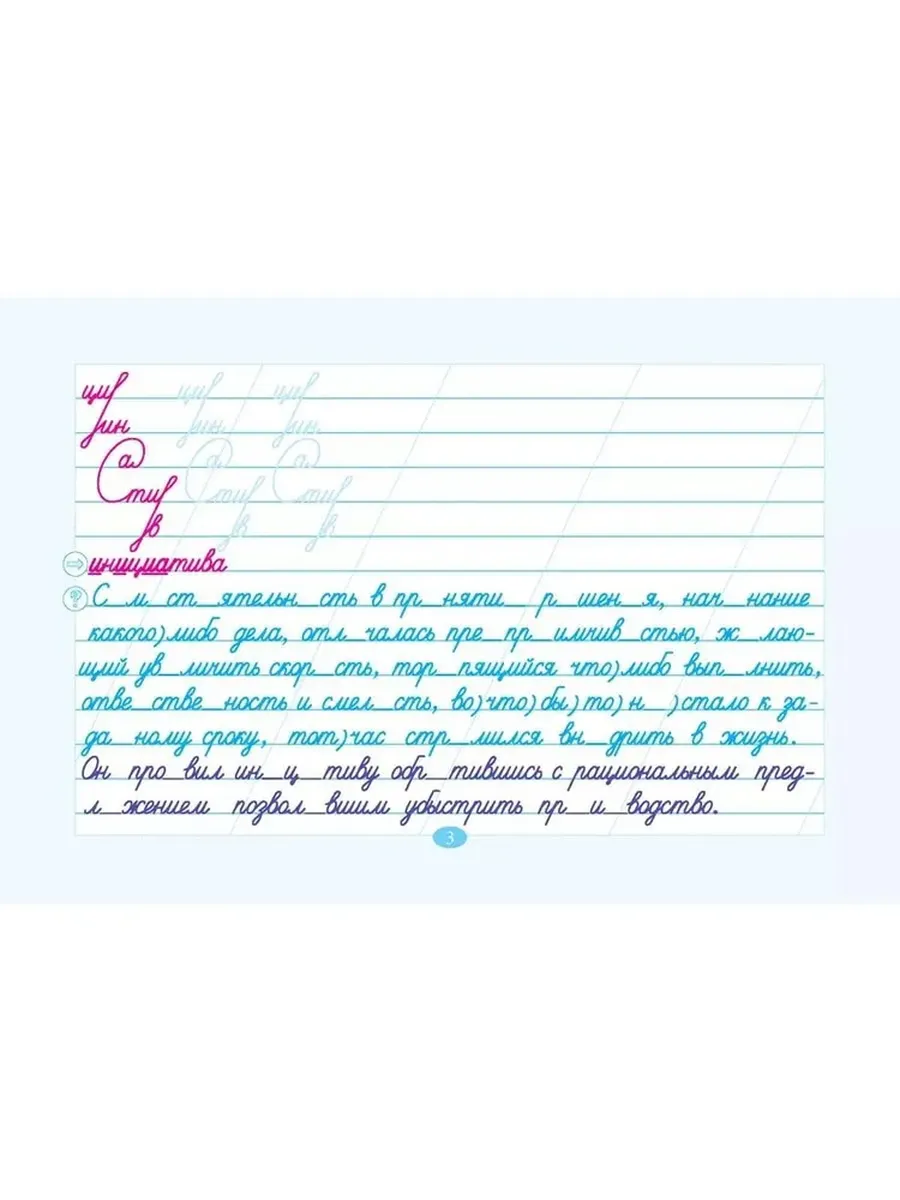 ци ци ци
ин ин ин
а а а
Сти Сти Сти
в в в
инициатива
С_м_ст_ятельн_сть в пр_няти_ р_шен_я, нач_нание
какого)либо дела, отл_чалась пре_пр_имчив_стью, ж_лаю-
щий ув_личить скор_сть, тор_пящийся что)либо вып_лнить,
отве_стве_ность и смел_сть, во)что)бы)то)н_)стало к за-
да_ному сроку, тот)час стр_мился вн_дрить в жизнь.
Он про_вил ин_ц_тиву обр_тившись с рациональным пред-
л_жением позвол_вшим убыстрить пр_и_водство.
3